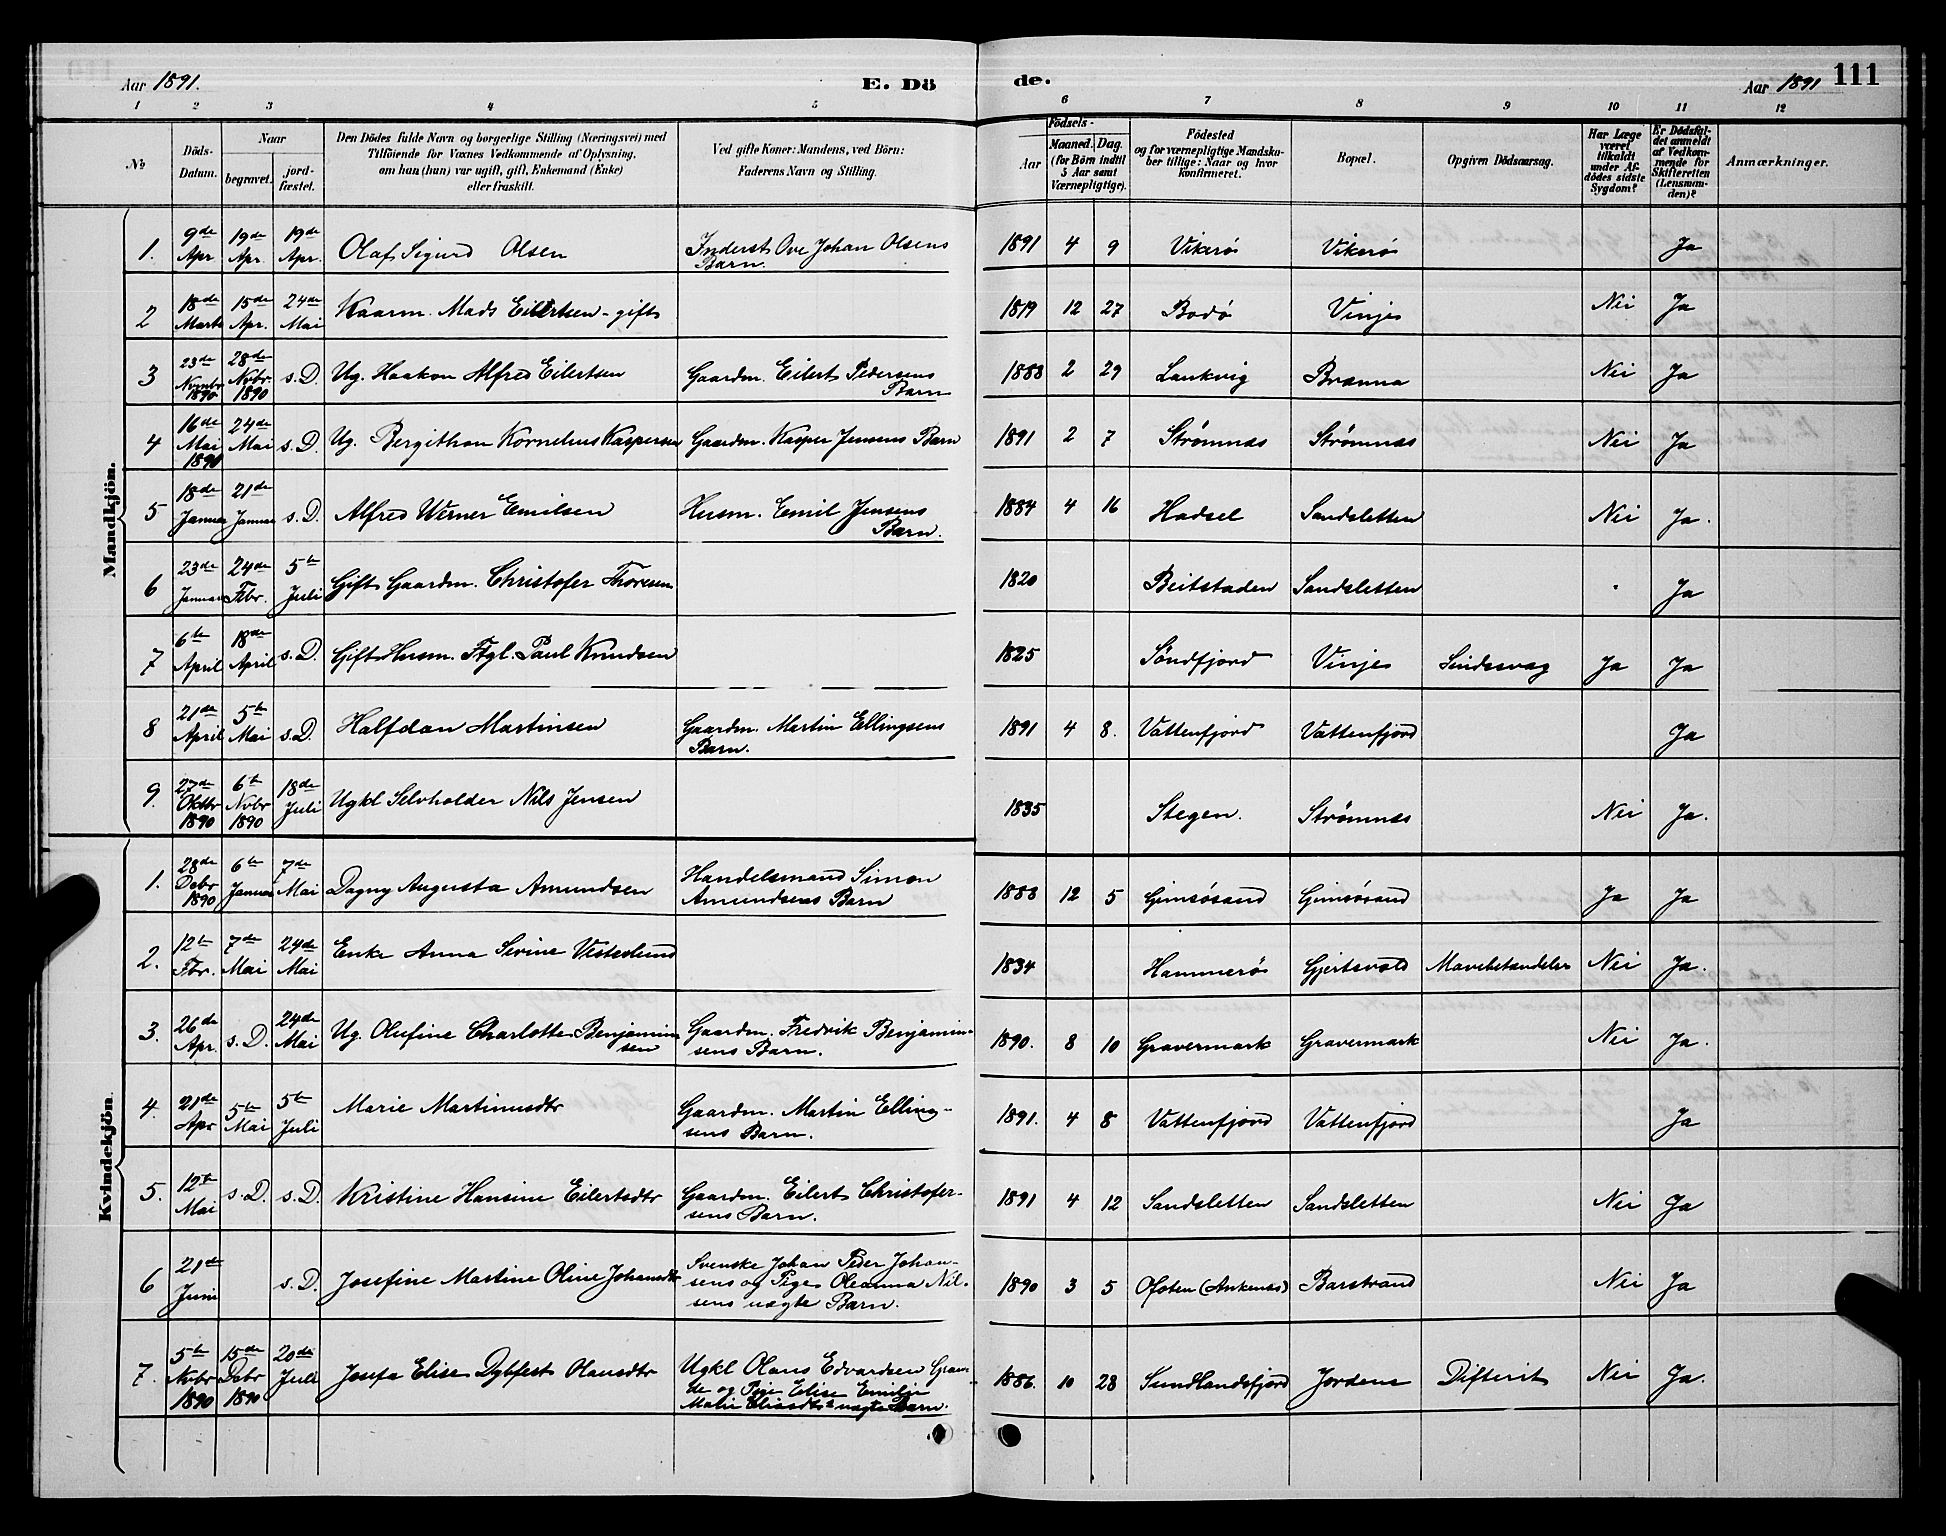 Aar 1891. E. Dö
de. Aar 1891 111
1 2 3 4 5 6 7 8 9 10 11 12
№ Döds-Datum. Naar begravet. jord-fæstet. Den Dödes fulde Navn og borgerlige Stilling (Næringsvei) med Tilföiende for Voxnes Vedkommende af Oplysning, om han (hun) var ugift, gift, Enkemand (Enke) eller fraskilt. Ved gifte Koner: Mandens, ved Börn: Faderens Navn og Stilling. Födsels- Aar Maaned. Dag. (for Börn indtil 5 Aar samt Værnepligtige). Födested og for værnepligtige Mandskaber tillige: Naar og hvor konfirmeret. Bopæl. Opgiven Dödsaarsag. Har Læge været tilkaldt under Afdödes sidste Sygdom? Er Dödsfaldet anmeldt af Vedkommende for Skifteretten (Lensmanden)? Anmærkninger.
Mandkjön.
1. 9de Apr. 19de Apr. 19de Apr. Olaf Sigurd Olsen Inderst Ove Johan Olsens Barn. 1891 4 9 Vikerö Vikerö Ja
2 18de Marts 15de Apr. 24de Mai Kaarm. Mads Eilertsen - gift 1819 12 27 Bodö Vinje Nei Ja
3 23de Novbr 1890 28de Novbr 1890 s.D. Ug. Haakon Alfred Eilertsen Gaardm. Eilert Pedersens Barn 1888 2 29 Laukvig Brenna Nei Ja
4 16de Mai 1891 24de Mai s.D. Ug. Bergithon Kornelius Kaspersen Gaardm. Kasper Jensens Barn 1891 2 7 Strömnæs Strömnæs Nei Ja
5 18de Januar 21de Januar s.D. Alfred Werner Emilsen Husm. Emil Jensens Barn. 1884 4 16 Hadsel Sandsletten Nei Ja.
6 23de Januar 24de Febr. 5te Juli Gift Gaardm. Christofer Thoresen 1820 Beitstaden Sandsletten Ja
7 6te April 18de April s.D. Gift Husm. Ftgl. Paul Knudsen 1825 Söndfjord Vinje Sindssvag Ja Ja
8 21de April 5te Mai s.D. Halfdan Martinsen Gaardm. Martin Ellingsens Barn. 1891 4 8. Vattenfjord Vattenfjord Ja
9. 27de Oktbr 1890 6te Nvbr 1890 18de Juli Ugkl Selvholder Nils Jensen 1835 Stegen. Strömnæs Nei Ja.
Kvindekjön.
1. 28de Debr 1890 6te Januar 7de Mai Dagny Augusta Amundsen Handelsmand Simon Amundsens Barn 1888 12 5 Gimsösand Gimsösand Ja Ja
2. 12te Fbr. 7de Mai 24de Mai Enke Anna Serine Vesterlund 1834 Hammerö Gjertsvold Mavebetændelse Nei Ja.
3. 26de Apr. s.D. 24de Mai Ug. Olufine Charlotte Benjaminsen Gaardm. Fredrik Benjaminsens Barn. 1890. 8 10 Gravermark Gravermark Nei Ja.
4. 21de Apr 5te Mai 5te Juli Marie Martinusdtr Gaardm. Martin Ellingsens Barn. 1891. 4 8 Vattenfjord Vattenfjord Ja
5. 12te Mai s.D. s.D. Kristine Hansine Eilertsdtr Gaardm. Eilert Christofersens Barn. 1891 4 12 Sandsletten Sandsletten Nei Ja
6 21de Juni s.D. Josefine Martine Oline Johansdtr Svenske Johan Peder Johansens og Pige Oleanna Nilsens uægte Barn. 1890 3 5 Ofoten (Ankenæs) Barstrand Nei Ja
7. 5te Nvbr 1890 15de Debr 1890 20de Juli Josefa Elise Dybfest Olausdtr Ugkl Olaus Edvardsen Grande og Pige Elise Emilie Malie Eliasdtrs uægte Barn. 1886. 10 28 Sundlandsfjord Jordens Difterit Nei Ja.